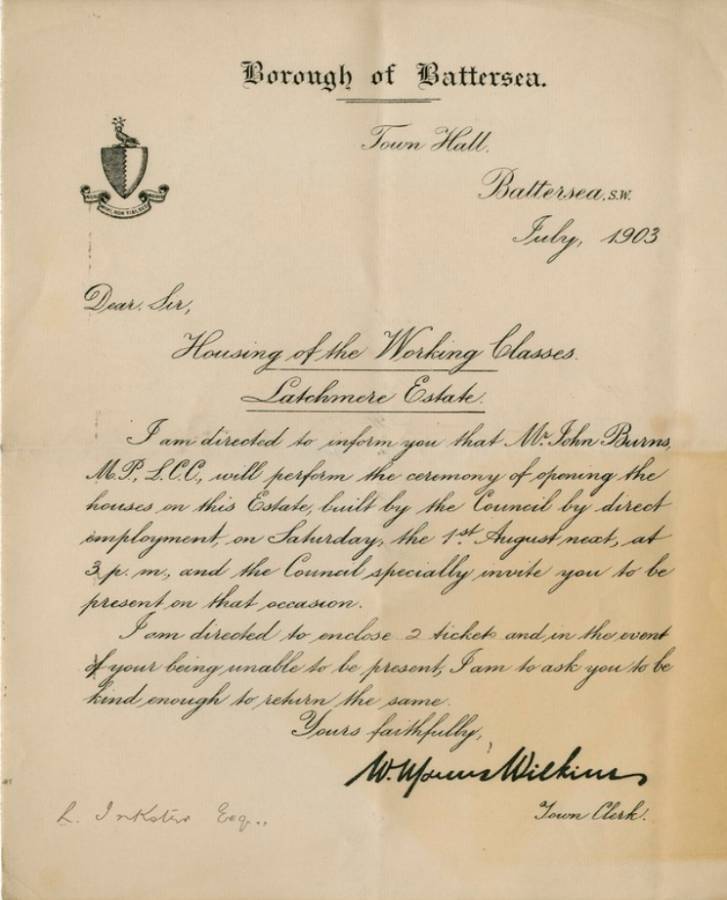 Borough of Battersea.
Town Hall.
Battersea, S.W.
July, 1903
Dear Sir,
Housing of the Working Classes.
Latchmere Estate.
I am directed to inform you that Mr. John Burns,
M.P., L.C.C., will perform the ceremony of opening the
houses on this Estate, built by the Council by direct
employment, on Saturday, the 1st. August next, at
3. p. m., and the Council specially invite you to be
present on that occasion.
I am directed to enclose 2 tickets and in the event
of your being unable to be present, I am to ask you to be
kind enough to return the same.
Yours faithfully,
W. Marcus Wilkins
Town Clerk.
L. Inkster Esq..